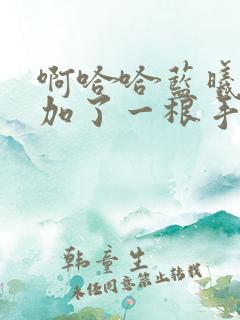 啊哈哈蓝曦
加了一根手
韩童生
未经同意禁止转载